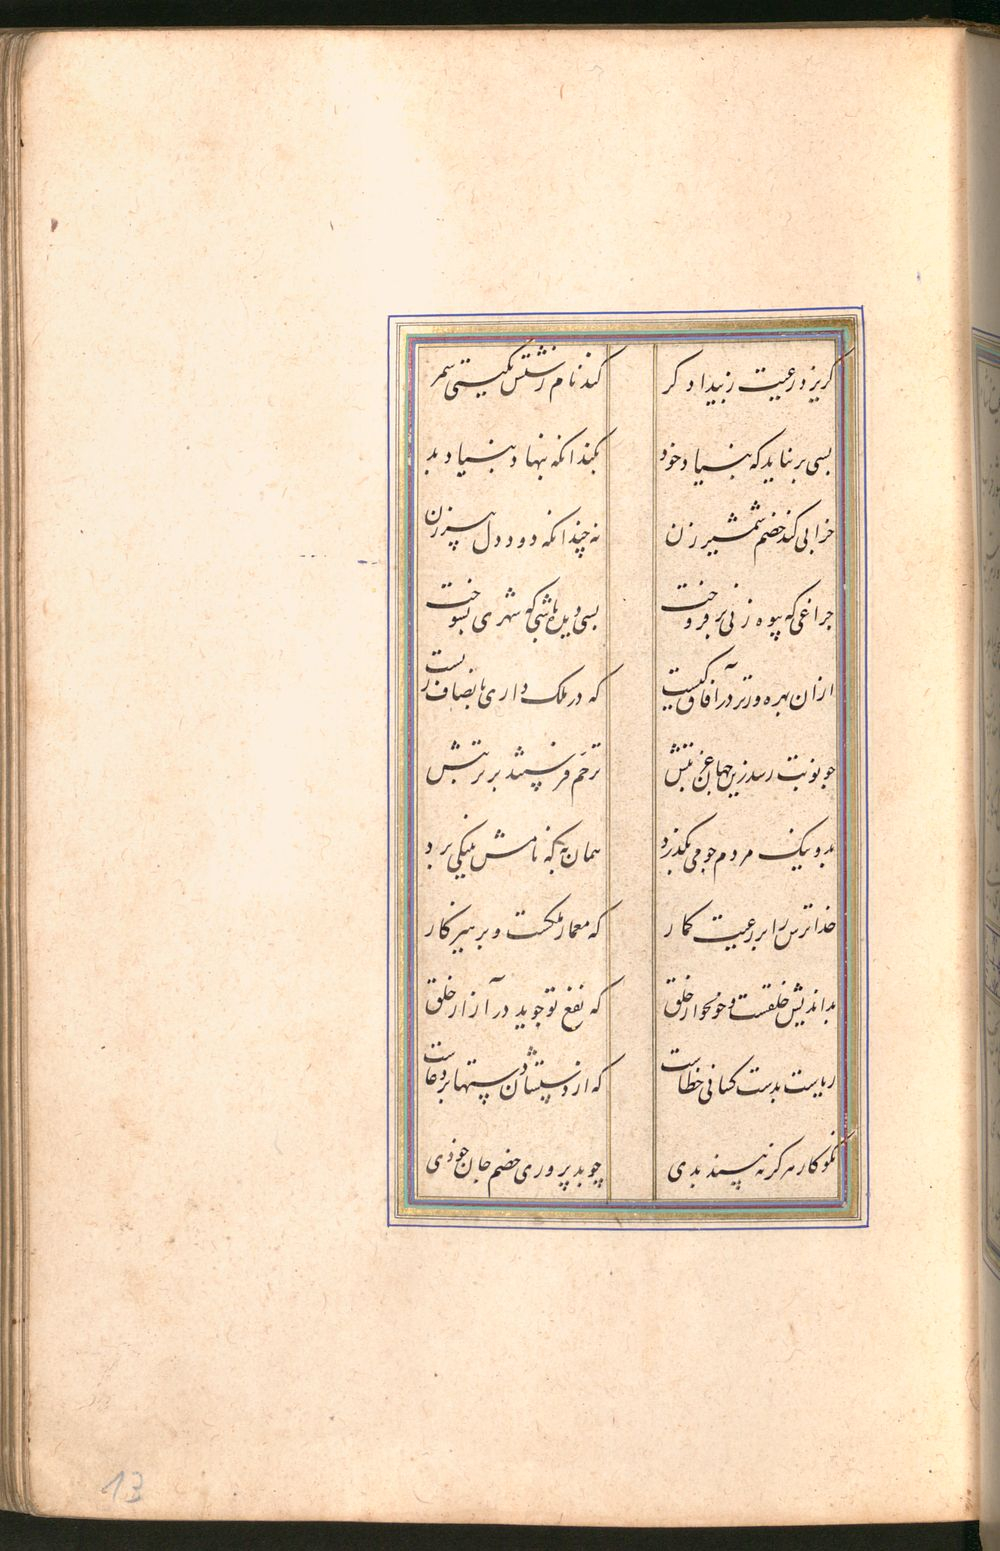 گریزد رعیت ز بیدادگر کند نام زشتش بگیتی سمر
بسی بر نیاید که بنیاد خود بکند آنکه بنهاد بنیاد بد
خرابی کند خصم شمشیر زن نه چندانکه دود دل پیر زن
چراغی که بیوه زنی بر فروخت بسی دیده باشی که شهری بسوخت
ازان بهره ورتر در آفاق کیست که در ملک داری بانصاف زیست
چو نوبت رسد زین جهان غربتش ترحم فرستند بر تربتش
بد و نیک مردم چو می بگذرد همان به که نامش بنیکی برد
خداترس را بر رعیت گمار که معمار ملکست و پرهیزگار
بداندیش خلقست و خونخوار خلق که نفع تو جوید در آزار خلق
ریاست بدست کسانی خطاست که از دستشان دستها بر دعاست
نکوکار هرگز نبیند بدی چو بد پروری خصم جان خودی
13